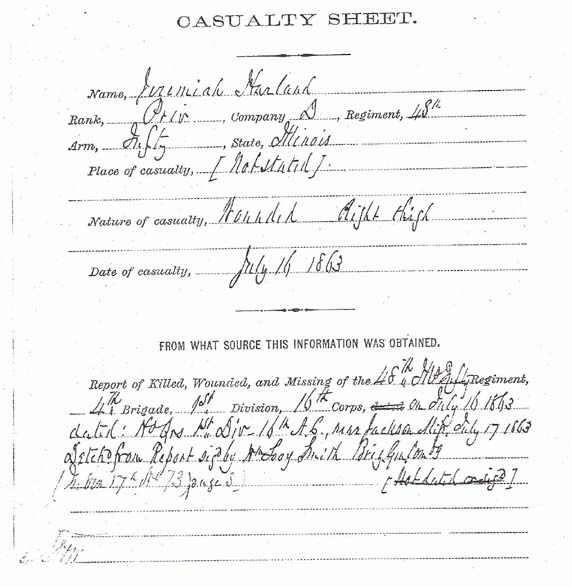 CASUALTY SHEET.
Name, Jeremiah Harland
Rank, Priv, Company D, Regiment, 48th
Arm, Infty, State, Illinois
Place of casualty, [Not stated].
Nature of casualty, Wounded Right thigh
Date of casualty, July 16 1863
FROM WHAT SOURCE THIS INFORMATION WAS OBTAINED.
Report of Killed, Wounded, and Missing of the 48th Ills Infty Regiment,
4th Brigade, 1st Division, 16th Corps, dated on July 16 1863
dated: Hd Qrs 1st Div 16th A.C., near Jackson Miss, July 17 1863
from Report sigd by Wm Sooy Smith Brig Gen Comdg
17th page 5 [Not dated or sigd]